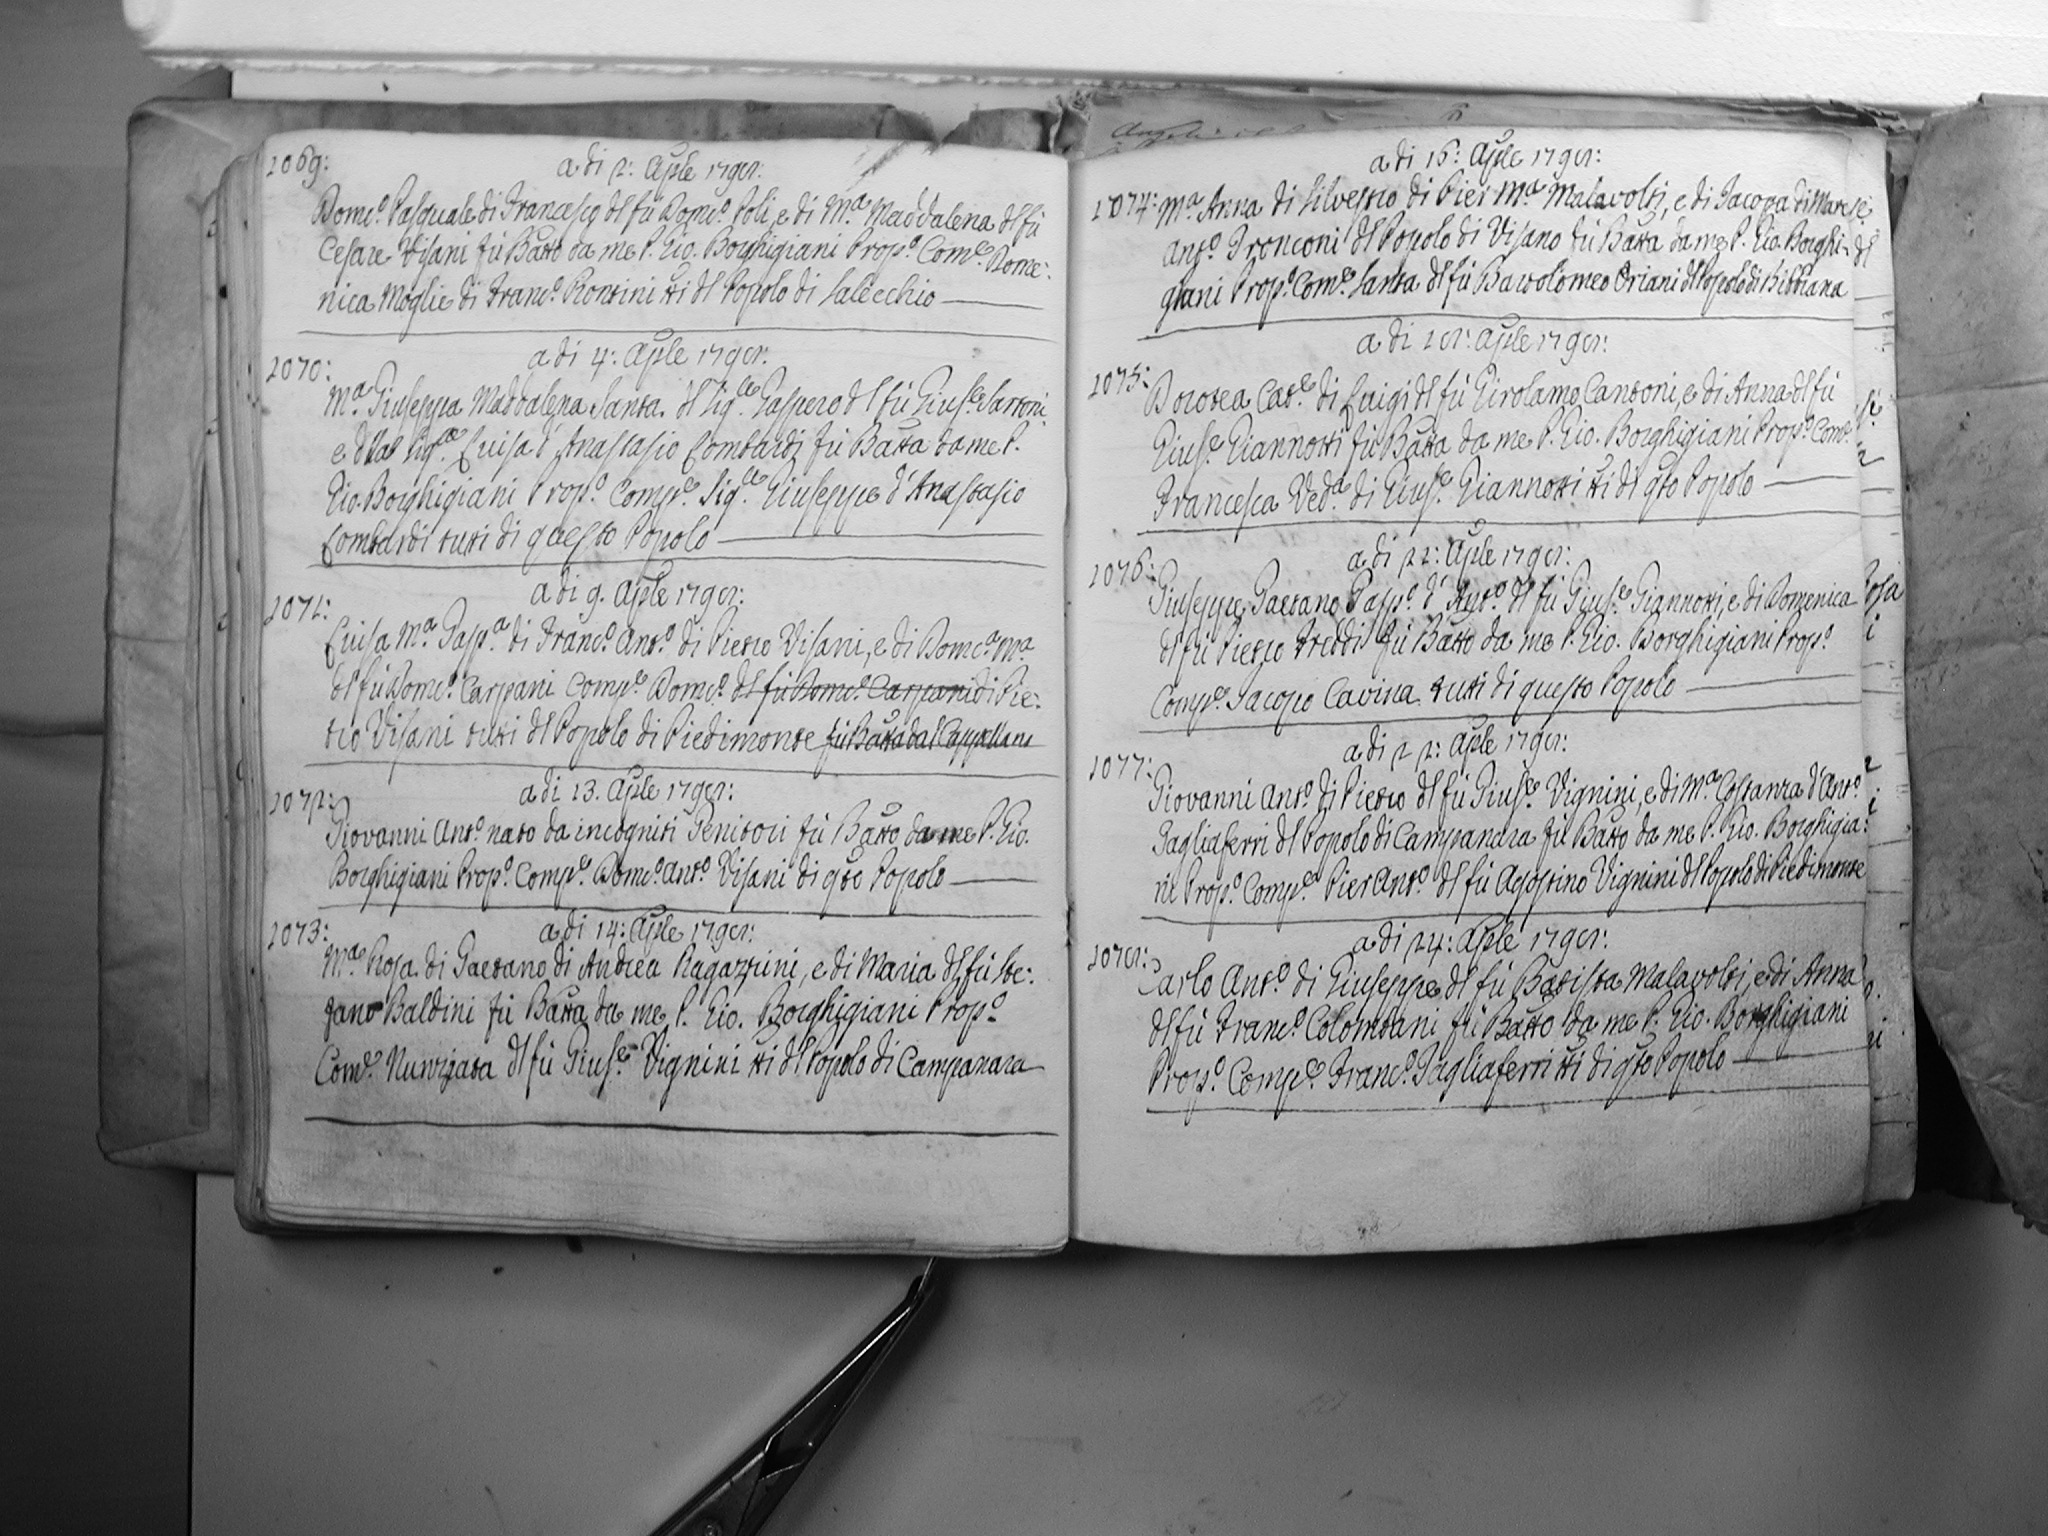 2069:
a dì 2: Aple 1798:
Domco. Pasquale di Francesco dl fù Domco. Poli, e di Ma. Maddalena dl fù
Cesare Visani fù Batto da me P. Gio. Borghigiani Propo. Come. Dome:
nica Moglie di Franco. Rontini tti dl Popolo di Salecchio
2070:
a dì 4: Aple 1798:
Ma. Giuseppa Maddalena Santa dl Sigre. Gaspero dl fù Giuse. Sartoni
e dlla Sigra. Luisa d'Anastasio Lombardi fù Batta da me P.
Gio. Borghigiani Propo. Compe. Sigre. Giuseppe d'Anastasio
Lombardi tutti di questo Popolo
2071:
a dì 9. Aple 1798:
Luisa Ma. Gaspa. di Franco. Anto. di Pietro Visani, e di Domca. Ma.
dl fù Domco. Carpani Compe. Domco. dl fù Domco. Carpani di Pie:
tro Visani tutti dl Popolo di Piedimonte fù Batta dal Cappellano
2072:
a dì 13. Aple 1798:
Giovanni Anto. nato da incogniti Genitori fù Batto da me P. Gio.
Borghigiani Propo. Compe. Domco. Anto. Visani di qsto Popolo
2073:
a dì 14: Aple 1798:
Ma. Rosa di Gaetano di Andrea Ragazzini, e di Maria dl fù Ste:
fano Baldini fù Batta da me P. Gio. Borghigiani Propo.
Come. Nunziata dl fù Giuse. Vignini tti dl Popolo di Campanara
a dì 16: Aple 1798:
2074: Ma. Anna di Silvestro di Pier Ma. Malavolti, e di Jacopa di
Anto. Tronconi dl Popolo di Visano fù Batta da me P. Gio. Borghi-
giani Propo. Come. Santa dl fù Bartolomeo Oriani dl Popolo di Bibbiana
a dì 18: Aple 1798:
2075:
Dorotea Cate. di Luigi dl fù Girolamo Cantoni, e di Anna dl fù
Giuse. Giannotti fù Batta da me P. Gio. Borghigiani Propo. Come.
Francesca Veda. di Giuse. Giannotti tti di qsto Popolo
a dì 22: Aple 1798:
2076:
Giuseppe Gaetano Gaspo. d'Anto. dl fù Giuse. Giannotti, e di Domenica
dl fù Pietro Freddi fù Batto da me P. Gio. Borghigiani Propo.
Compe. Jacopo Cavina tutti di questo Popolo
a dì 22: Aple 1798:
2077:
Giovanni Anto. di Pietro dl fù Giuse. Vignini, e di Ma. Costanza d'Anto.
Tagliaferri dl Popolo di Campanara fù Batto da me P. Gio. Borghigia:
ni Propo. Compe. Pier Anto. dl fù Agostino Vignini dl Popolo di Piedimonte
a dì 24: Aple 1798:
2078:
Carlo Anto. di Giuseppe dl fù Batista Malavolti, e di Anna
dl fù Franco. Colombani fù Batto da me P. Gio. Borghigiani
Propo. Compe. Franco. Tagliaferri tti di qsto Popolo